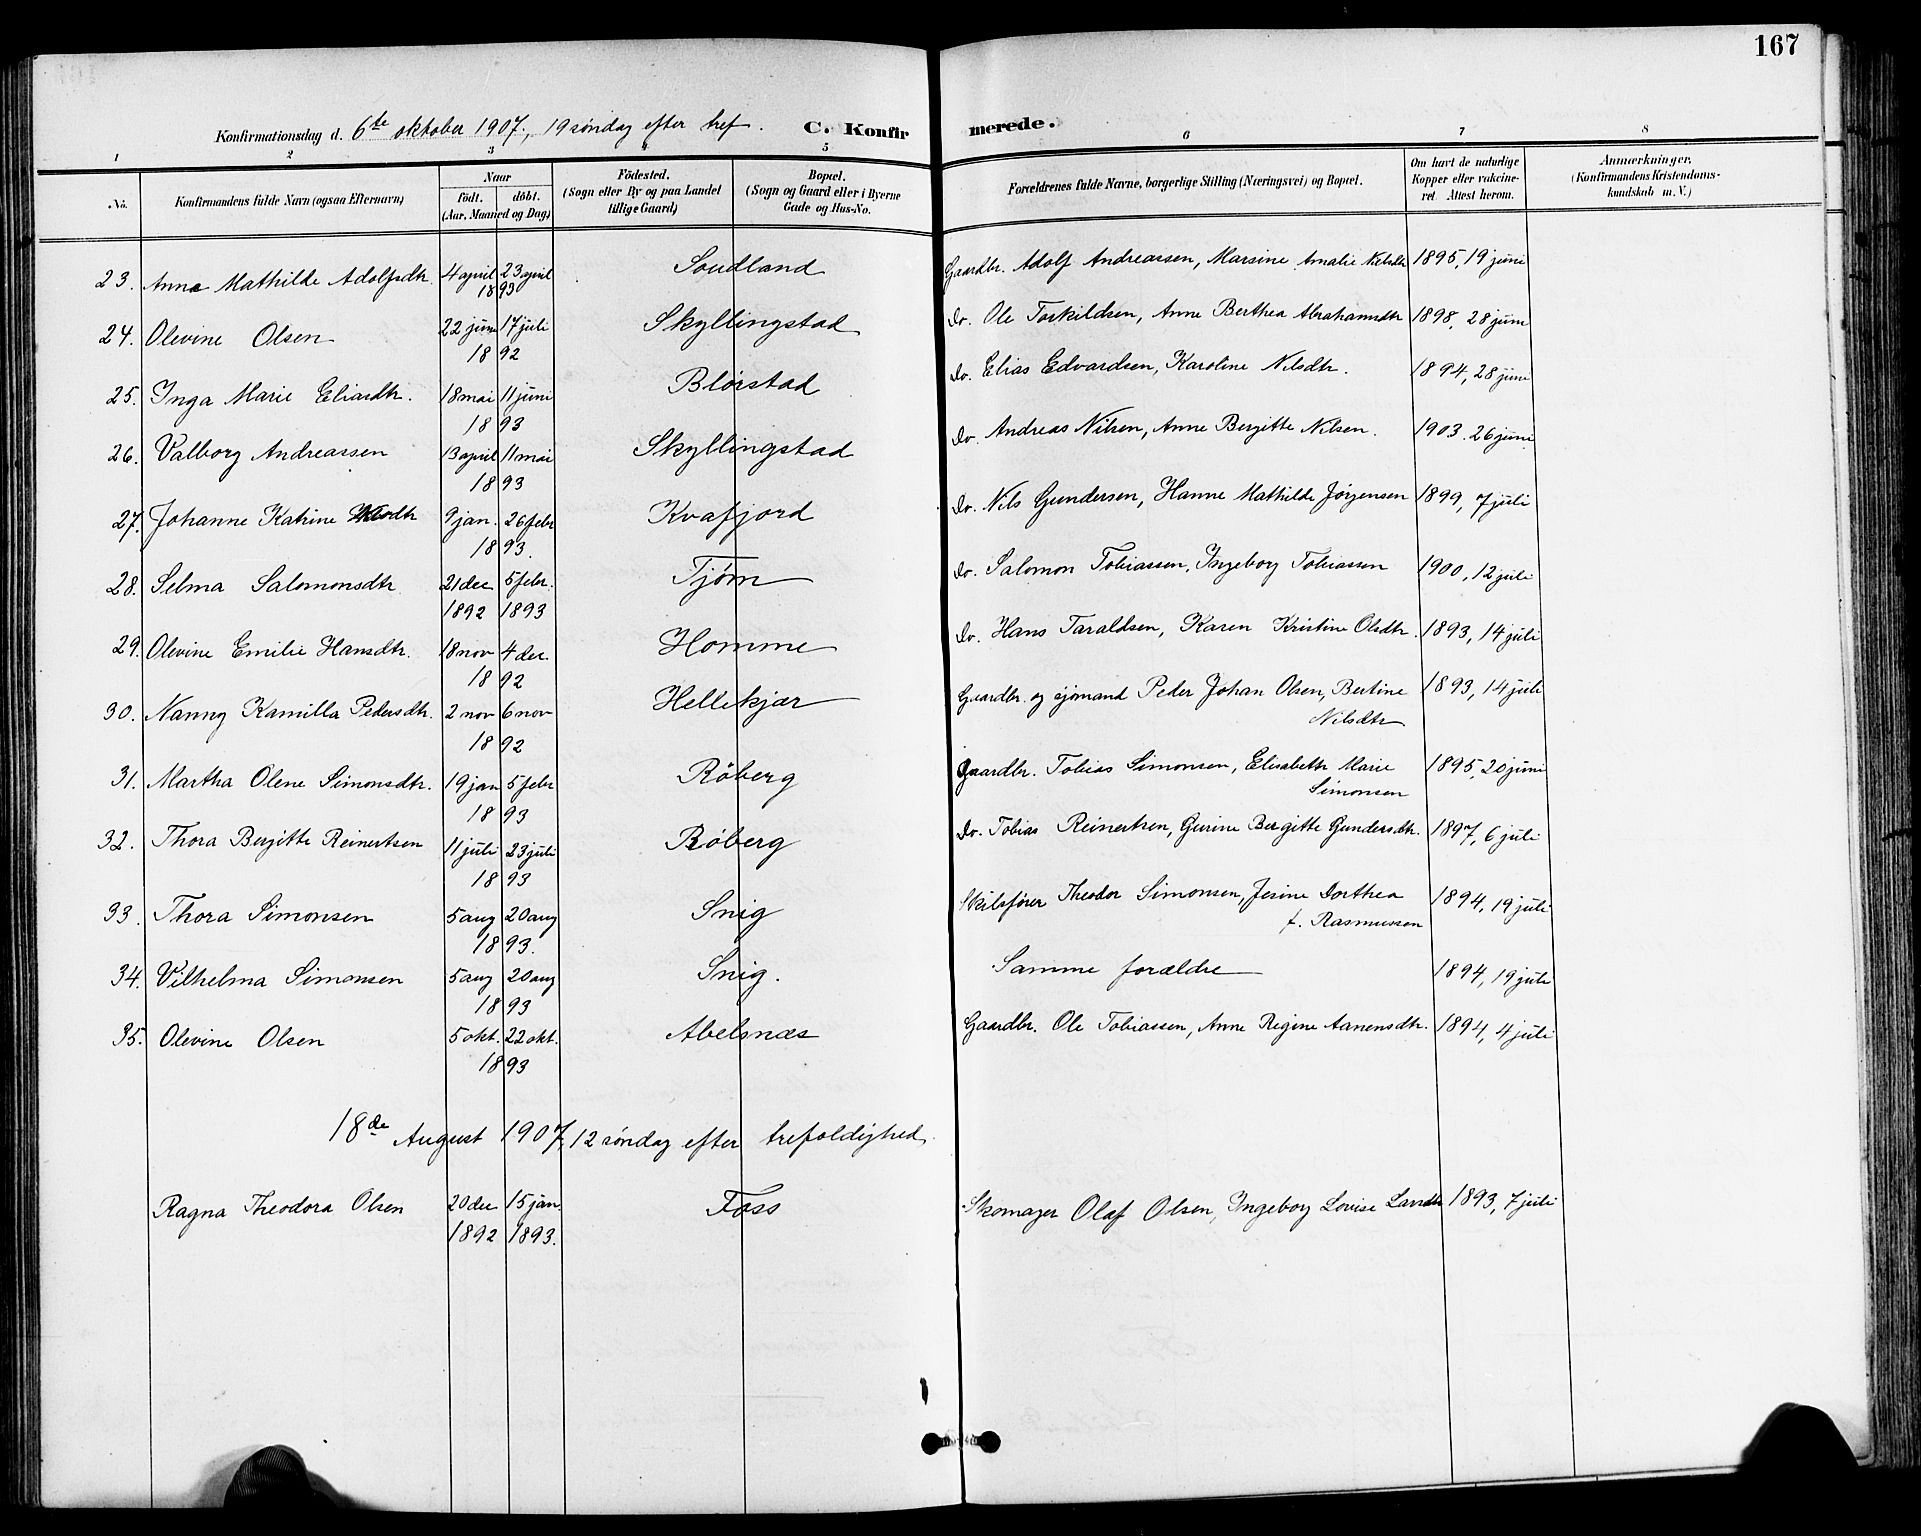 167
Konfirmationsdag d. 6te oktober 1907, 19 söndag efter tref. C. Konfirmerede.
1 2 3 4 5 6 7 8
No. Konfirmandens fulde Navn (ogsaa Efternavn) Naar födt. döbt. (Aar, Maaned og Dag) Födested. (Sogn eller By og paa Landet tillige Gaard) Bopæl. (Sogn og Gaard eller i Byerne Gade og Hus-No. Forældrenes fulde Navne, borgerlige Stilling (Næringsvei) og Bopæl. Om havt de naturlige Kopper eller vakcineret Attest herom. Anmærkninger, (Konfirmandens Kristendomskundskab m. V.)
23. Anna Mathilde Adolfsdtr. 4 april 23 april 1893 Soudland Gaardbr. Adolf Andreassen, Marsine Amalie Nielsdtr 1895, 19 juni
24. Olevine Olsen 22 juni 17 juli 1892 Skyllingstad do. Ole Torkildsen, Anne Berthea Abrahamsdtr 1898, 28 juni
25. Inga Marie Eliasdtr. 18 mai 11 juni 1893 Blörstad do. Elias Edvardsen, Karoline Nilsdtr. 1894, 28 juni
26. Valborg Andreassen 13 april 11 mai 1893 Skyllingstad do. Andreas Nilsen, Anne Bergitte Nilsen. 1903. 26 juni
27. Johanne Katrine 9 jan. 26 febr 1893. Kvafjord do. Nils Gundersen, Hanne Mathilde Jørgensen 1899, 7 juli
28. Selma Salomonsdtr 21 dec 1892 5 febr. 1893 Tjøm do. Salomon Tobiassen, Ingeborg Tobiassen 1900, 12 juli
29. Olevine Emilie Hansdtr. 18 nov 4 der. 1892 Homme do. Hans Taraldsen, Karen Kristine Olsdtr. 1893, 14 juli
30. Nanny Kamilla Pedersdtr. 2 nov 6 nov 1892 Hellekjær Gaardbr. og sjömand Peder Johan Olsen, Bertine Nilsdtr 1893, 14 juli
31. Martha Olene Simonsdtr. 19 jan 5 febr 1893 Röberg Gaardbr. Tobias Simonsen, Elisabeth Marie Simonsen 1895, 20 juni
32. Thora Bergitte Reinertsen 11 juli 23 juli 1893 Röberg do. Tobias Reinertsen, Gurine Bergitte Gundersdtr. 1897, 6 juli
33. Thora Simonsen 5 aug 20 aug 1893. Snig Skibsförer Theodor Simonsen, Jesine Dorthea f. Rasmussen 1894, 19 juli
34. Vilhelma Simonsen 5 aug 20 aug 1893 Snig. Samme forældre 1894, 19 juli
35. Olevine Olsen 5 okt. 22 okt. 1893 Abelsnæs Gaardbr. Ole Tobiassen, Anne Regine Aanensdtr. 1894, 4 juli
18de August 1907, 12 söndag efter trefoldighed.
Ragna Theodora Olsen 20 dec 1892 15 jan. 1893. Foss Skomager Olaf Olsen, Ingeborg Lovise 1893, 7 juli